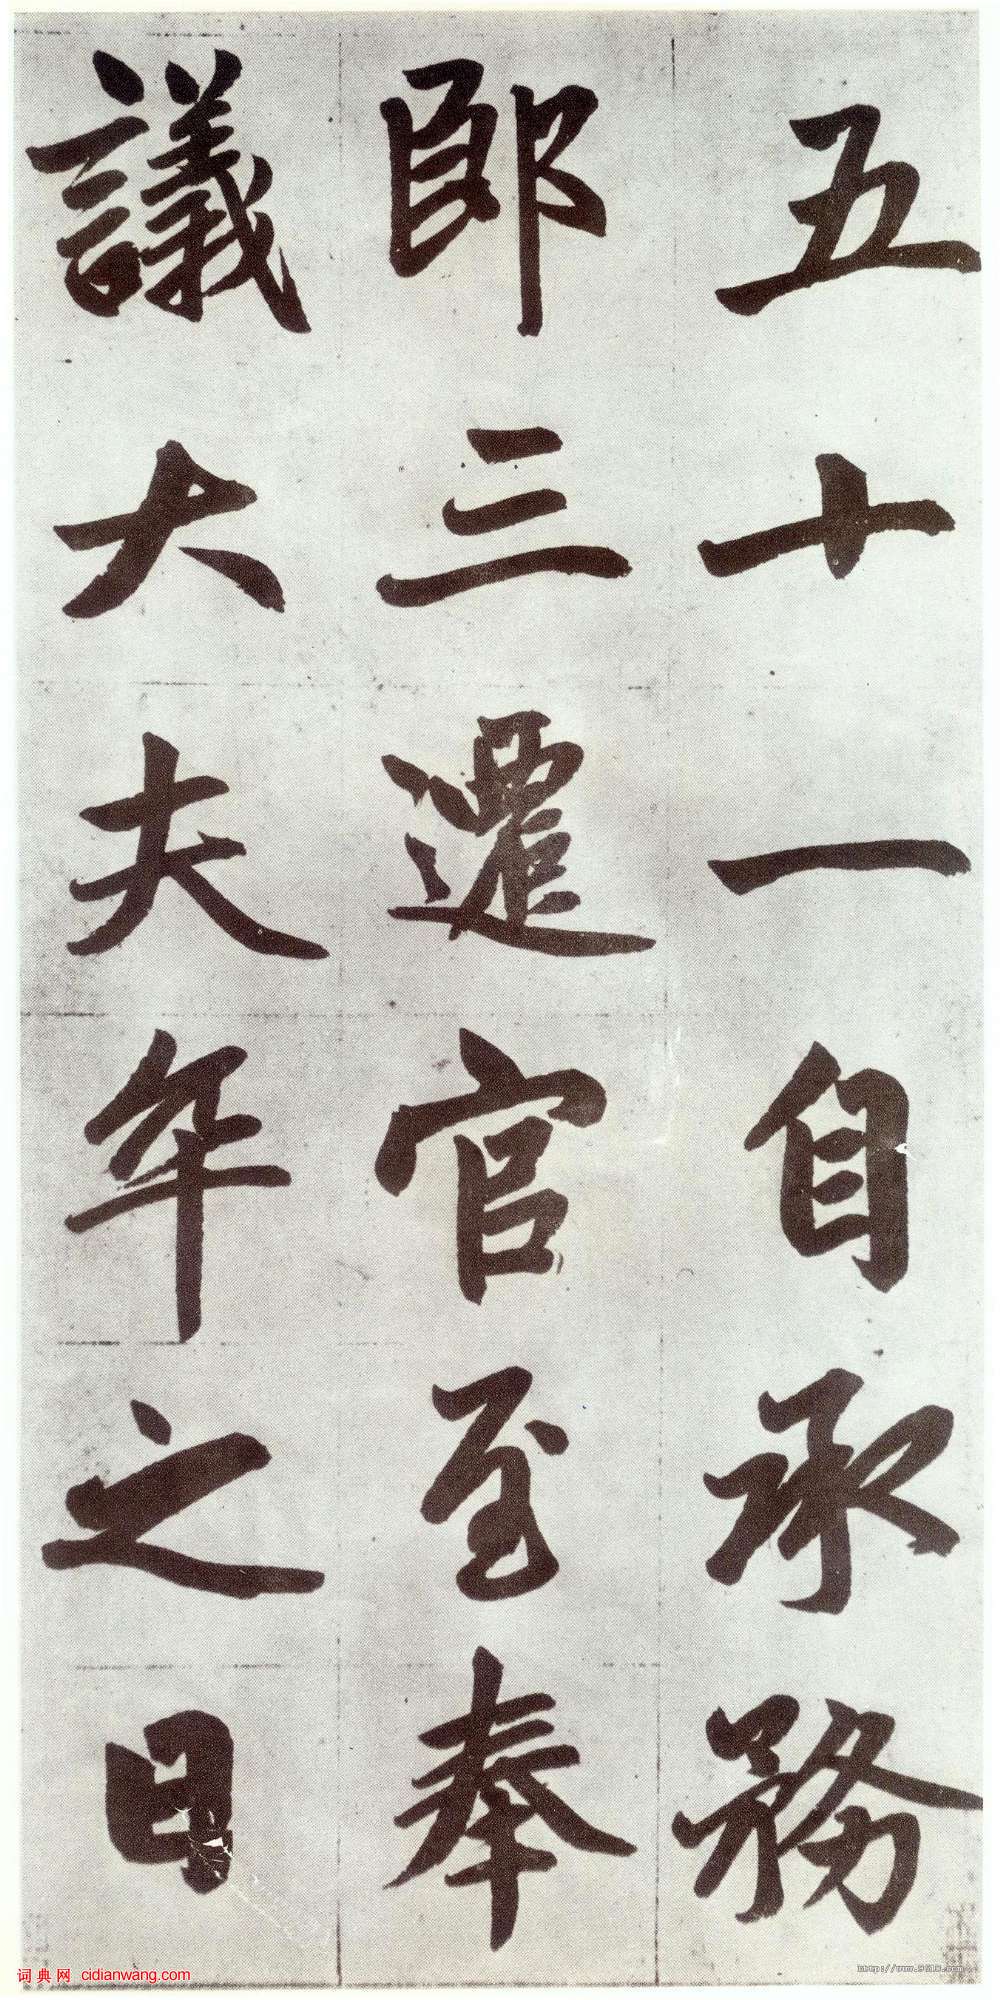 五十一自承務
郎三遷官至奉
議大夫卒之日
词典网 cidianwang.com
http://www.9610.com